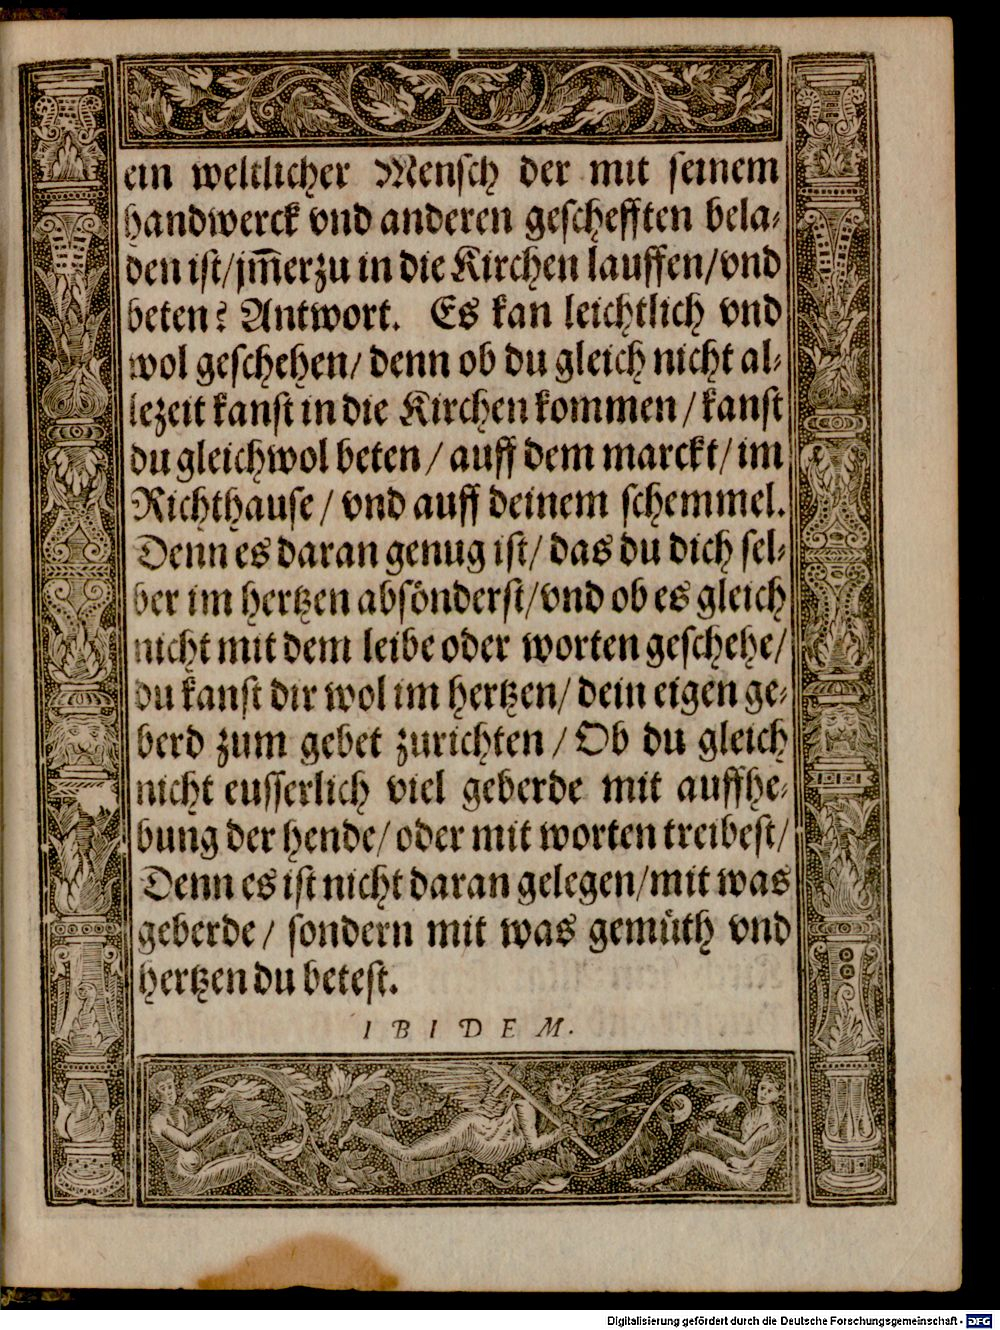 ein weltlicher Mensch der mit seinem
handwerck vnd anderen geschefften bela⸗
den ist/jm̅erzu in die Kirchen lauffen/vnd
beten? Antwort. Es kan leichtlich vnd
wol geschehen/ denn ob du gleich nicht al⸗
lezeit kanst in die Kirchen kommen/kanst
du gleichwol beten/ auff dem marckt/ im
Richthause/ vnd auff deinem schemmel.
Denn es daran genug ist/ das du dich sel⸗
ber im hertzen absönderst/vnd ob es gleich
nicht mit dem leibe oder worten geschehe/
du kanst dir wol im hertzen/ dein eigen ge⸗
berd zum gebet zurichten/ Ob du gleich
nicht eusserlich viel geberde mit auffhe⸗
bung der hende/ oder mit worten treibest/
Denn es ist nicht daran gelegen/mit was
geberde/ sondern mit was gemüth vnd
hertzen du betest.
IBIDEM.
Digitalisierung gefördert durch die Deutsche Forschungsgemeinschaft - DFG